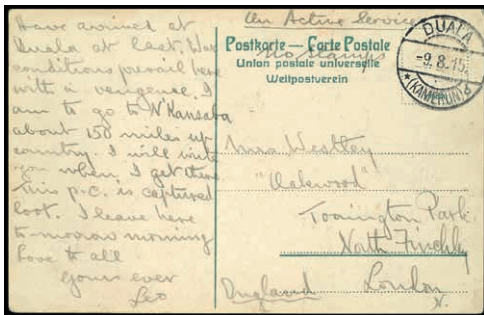 Have arrived at
Duala at last. War
conditions prevail here
with a vengence. I
am to go to N'Kansaba
about 150 miles up
country. I will write
you when I get there
This p.c. is captured
loot. I leave here
to-morrow morning
Love to all
Yours ever
Leo
On Active Service
No Stamps
Postkarte — Carte Postale
Union postale universelle
Weltpostverein
DUALA
9.8.15
(KAMERUN)
Westley
"Oakwood"
Torrington Park
North Finchley
London
N.
England